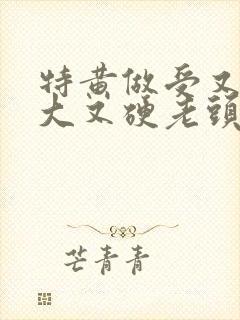 特黄做受又
大又硬老頭
芒青青